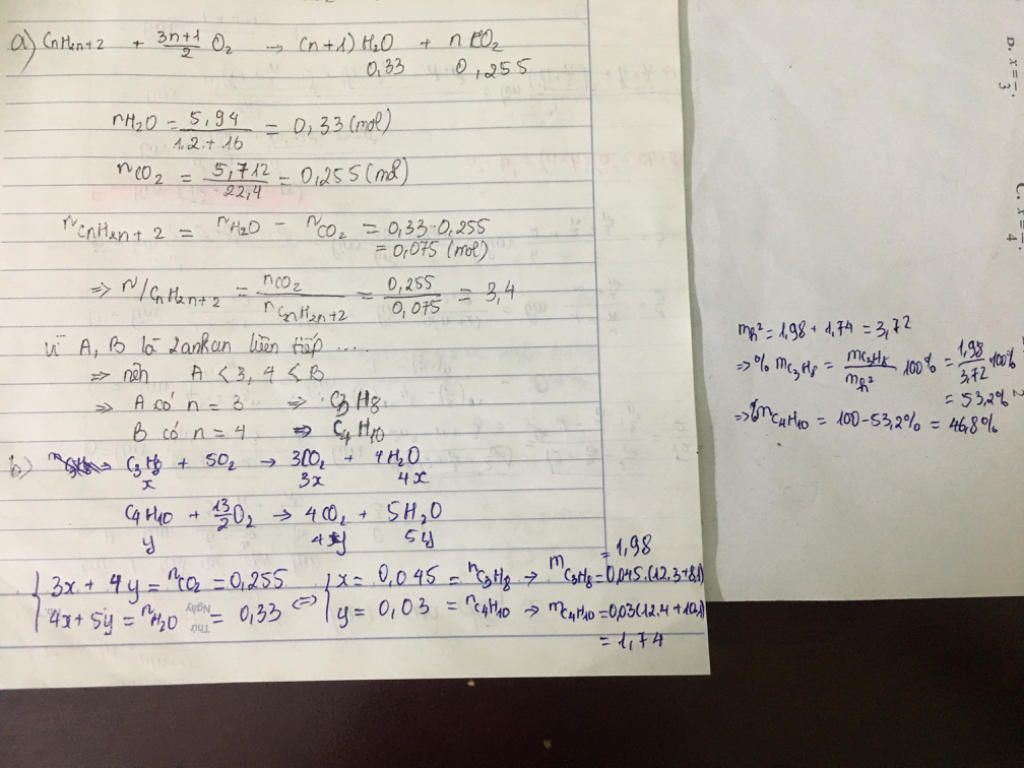 a) CnH2n+2 + 3n+1/2 O2 → (n+1) H2O + n CO2
0,33 0,255
nH2O = 5,94/1.2+16 = 0,33 (mol)
nCO2 = 5,712/22,4 = 0,255 (mol)
nCnH2n+2 = nH2O - nCO2 = 0,33-0,255
= 0,075 (mol)
=> n/CnH2n+2 = nCO2/nCnH2n+2 = 0,255/0,075 = 3,4
Vì A, B là 2ankan liên tiếp ...
=> nên A < 3,4 < B
=> A có n = 3 => C3H8
B có n = 4 => C4H10
b) C3H8 + 5O2 → 3CO2 + 4H2O
x 3x 4x
C4H10 + 13/2 O2 → 4CO2 + 5H2O
y 4y 5y
3x + 4y = nCO2 = 0,255
4x + 5y = nH2O = 0,33
Thứ
Ngày
<=> x = 0,045 = nC3H8 → mC3H8 = 0,045.(12.3+8.1)
= 1,98
y = 0,03 = nC4H10 → mC4H10 = 0,03(12.4+10.1)
= 1,74
mh2 = 1,98 + 1,74 = 3,72
=> % mC3H8 = mC3H8/mh2 100% = 1,98/3,72 100%
= 53,2%
=> %mC4H10 = 100-53,2% = 46,8%
D. x = π/3.
C. x = π/4.